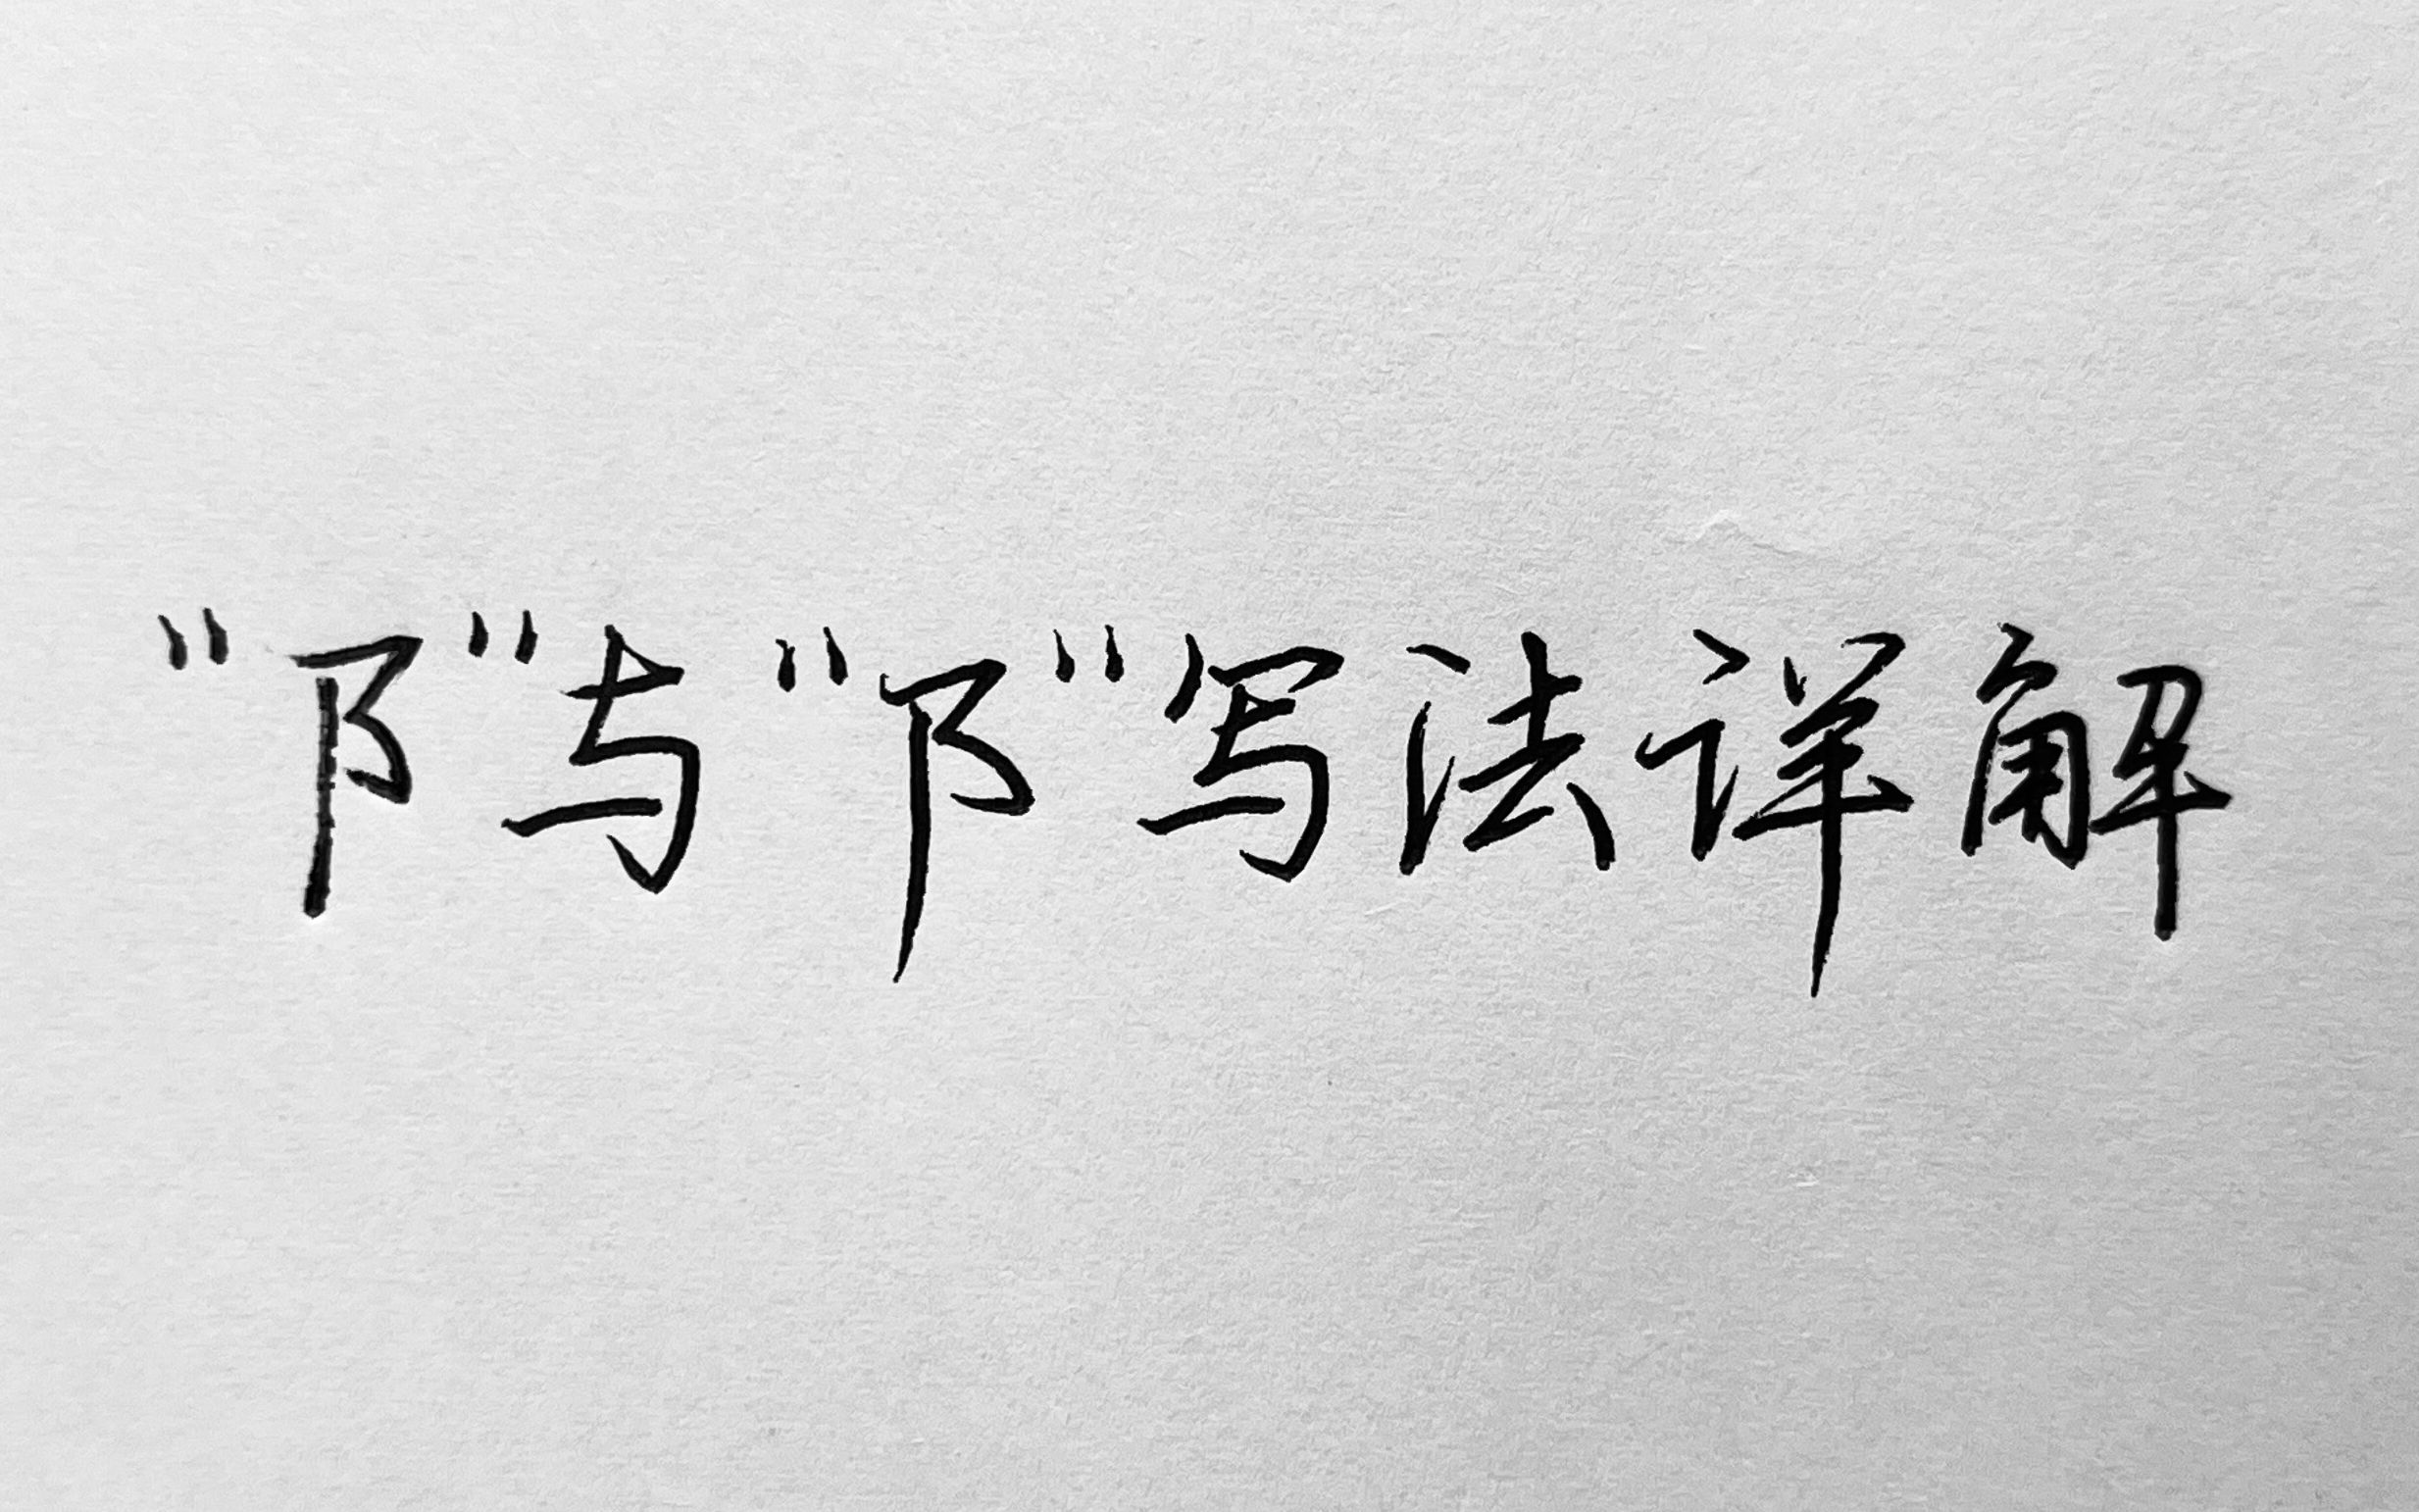 “阝”与“阝”写法详解